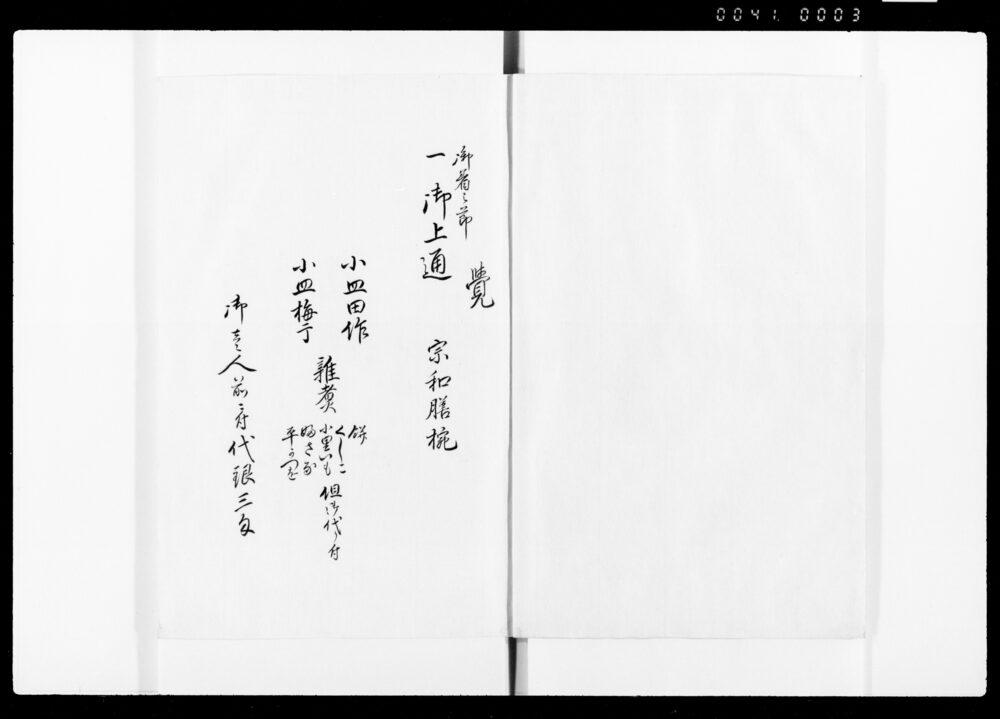 0041. 0003
覺
御着之節
一御上通 宗和膳椀
小皿田作
雑煮
餅
くしこ
小里いも 但御代り付
小皿梅干
平かつを
御壱人前ニ付代銀三匁